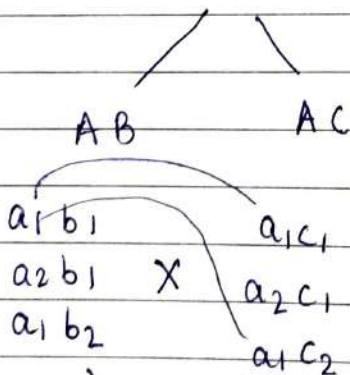 AB AC
a1 b1 a1 c1
a2 b1 X a2 c1
a1 b2 a1 c2